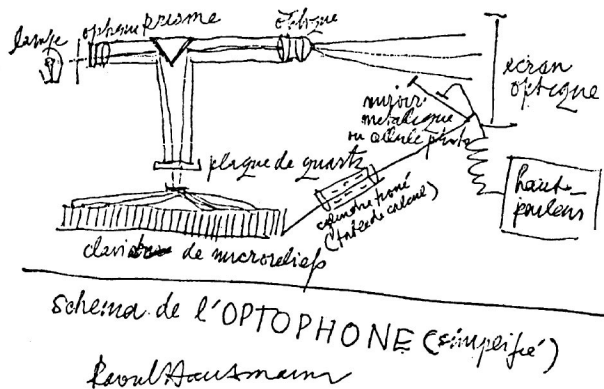 lampe
optique
prisme
optique
écran
optique
miroir
metallique
ou cellule photo
plaque de quartz
cylindre troné
(table de calcul)
haut-
parleurs
clavier de microreliefs
schema de l'OPTOPHONE (simplifié)
Raoul Hausmann